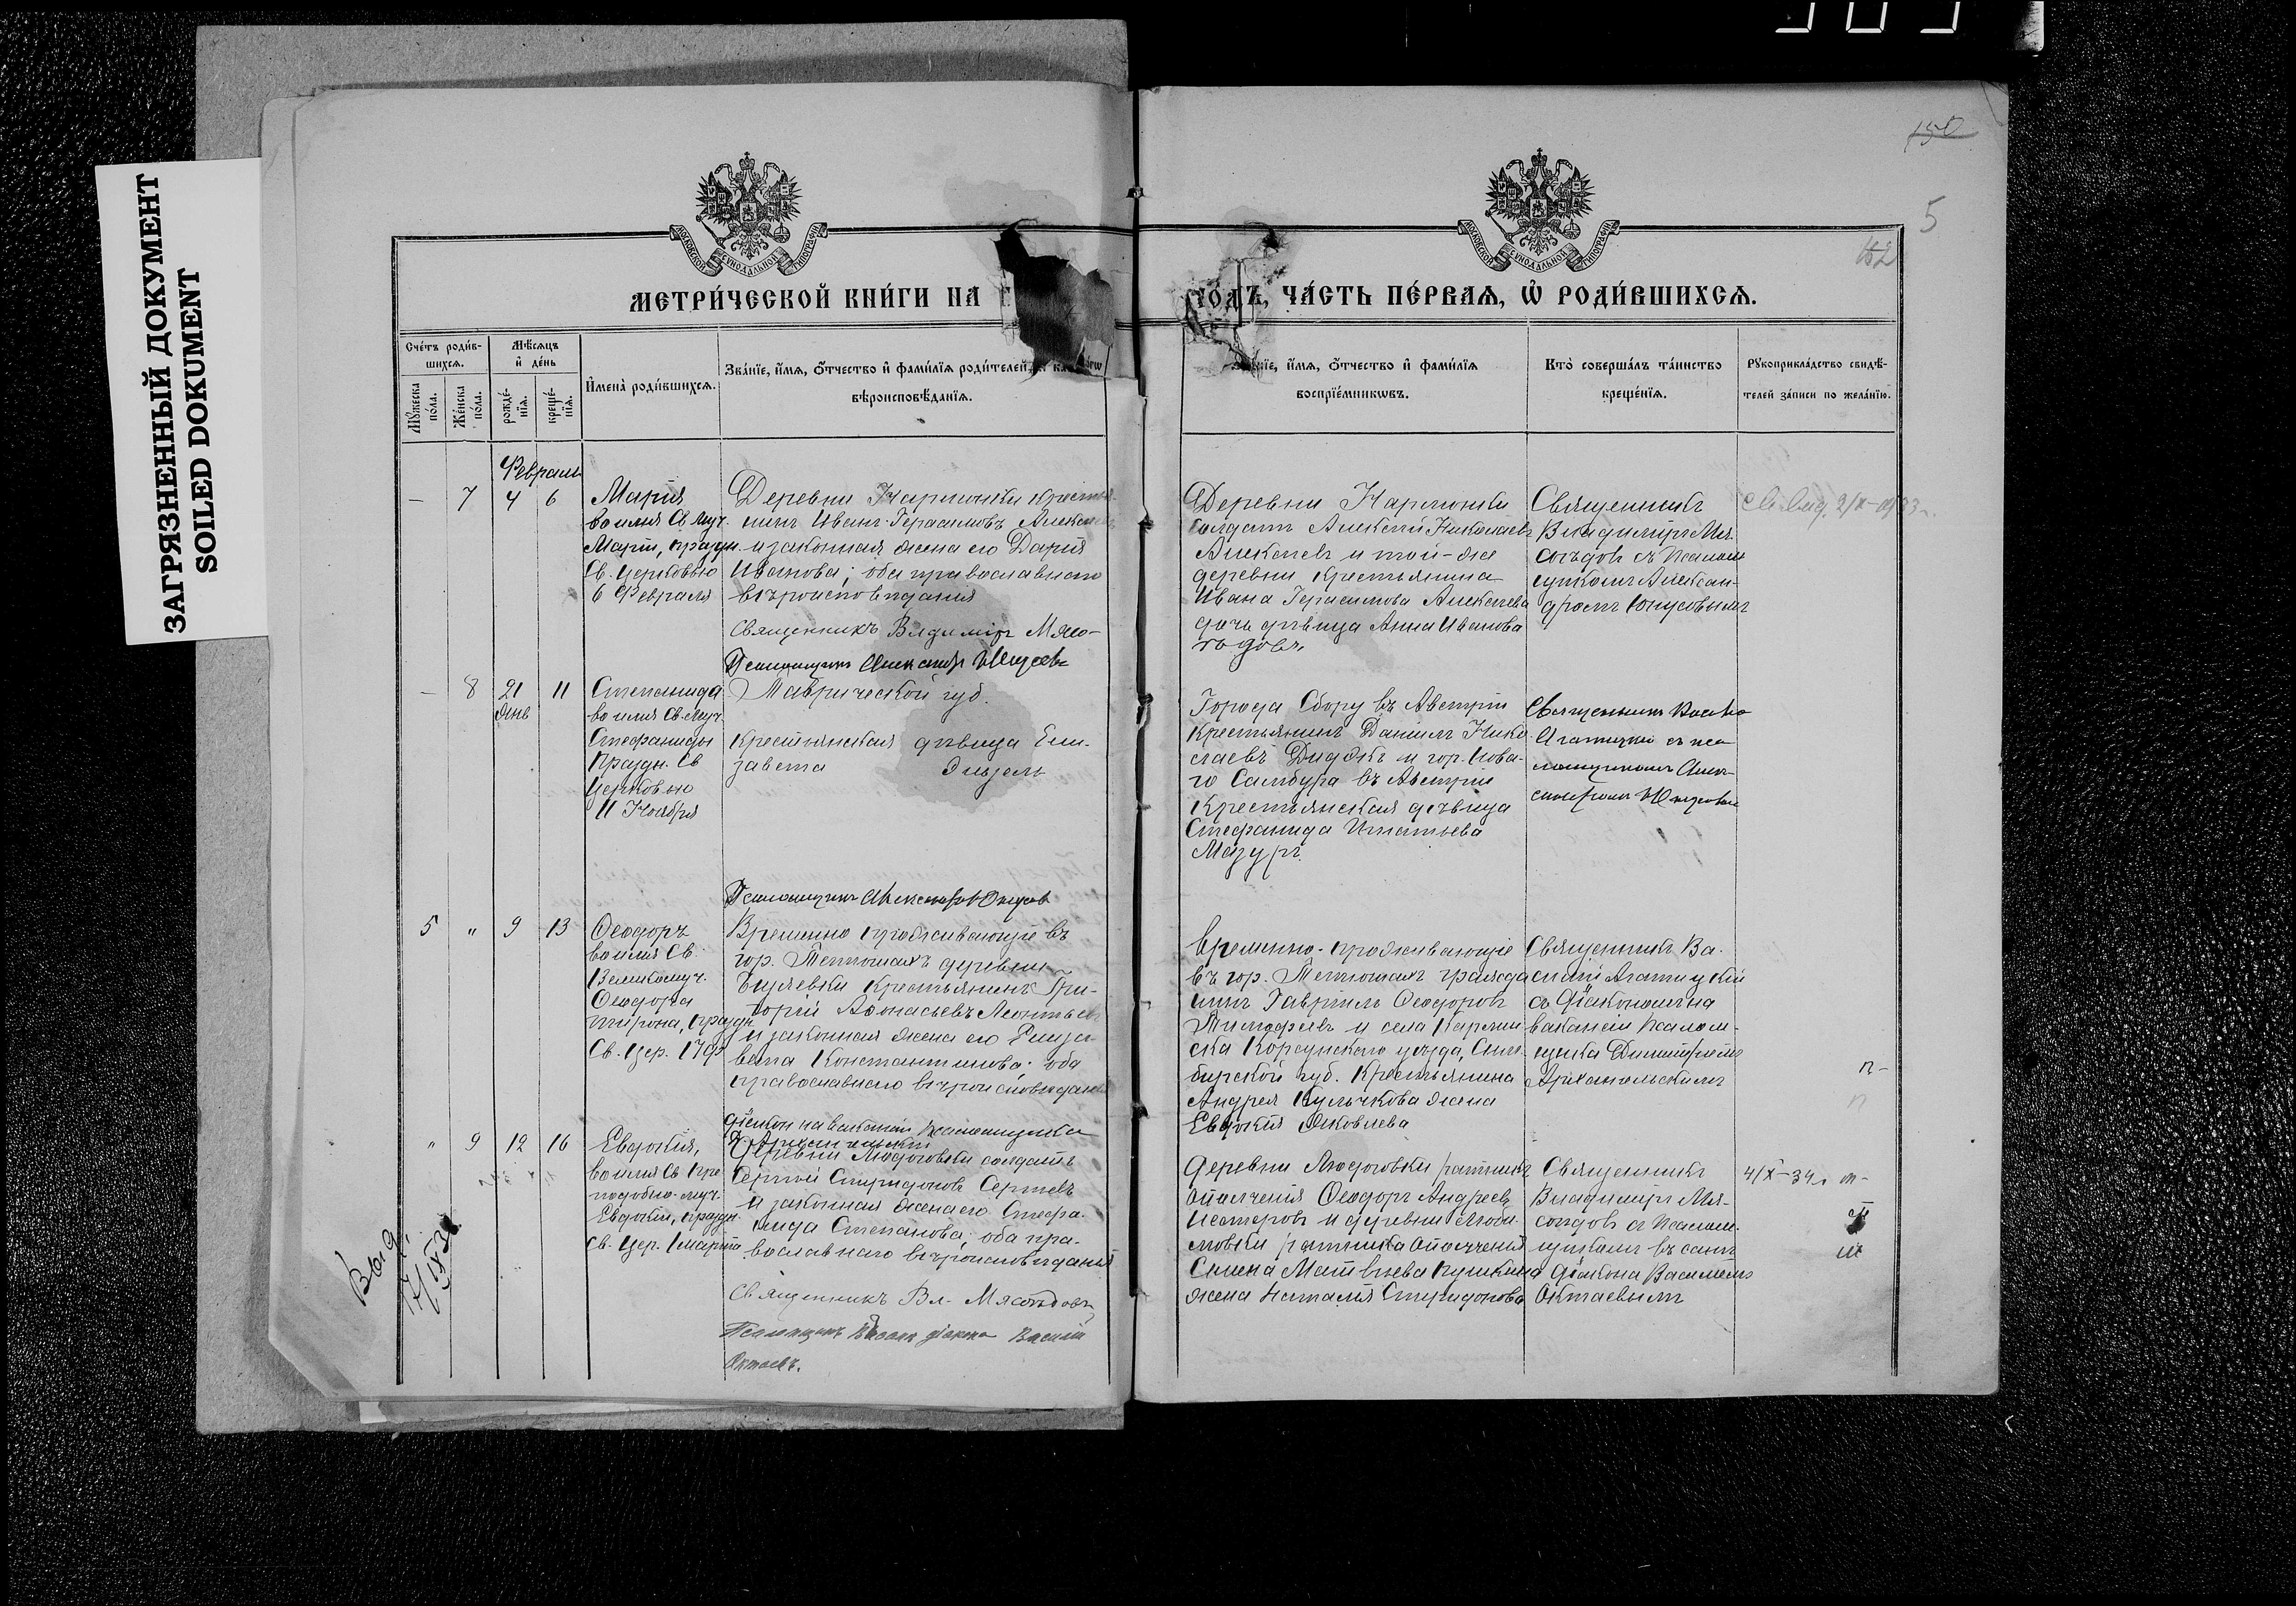 ЗАГРЯЗНЕННЫЙ ДОКУМЕНТ
SOILED DOKUMENT
150
5
152
МОСКОВСКОЙ СУНОДАЛЬНОЙ ТИПОГРАФІИ
МОСКОВСКОЙ СУНОДАЛЬНОЙ ТИПОГРАФІИ
МЕТРИ́ЧЕСКОЙ КНИ́ГИ НА
ГО́ДЪ, ЧА́СТЬ ПЕ́РВАЯ, Ѡ РОДИ́ВШИХСЯ.
Сче́тъ роди́в-
шихся.
Мꙋ́жеска пола.
Же́нска по́ла.
Мѣ́сяцъ
и҆ де́нь
рожде́-
нїя.
креще́-
нїя.
И҆мена̀ роди́вшихся.
Зва́нїе, и҆́мя, ѻ҆́тчество и҆ фами́лїя роди́телей,
вѣроисповѣ́данїя.
и҆́мя, ѻ҆́тчество и҆ фами́лїя
воспрїе́мникѡвъ.
Кто̀ соверша́лъ та́инство
креще́нїя.
Рꙋкоприкла́дство свидѣ́-
телей за́писи по жела́нїю.
Февраль
— 7 4 6
Марія
во имя Св. Муч.
Маріи, праздн.
Св. Церковью
6 Февраля
Деревни Кармонки кресть-
нинъ Иванъ Герасимовъ
и законная жена его Дарія
Иванова; оба православнаго
вѣроисповѣданія
Священникъ Вл
Псаломщикъ Александръ
Деревни Кармонки
солдатъ Алексѣй Николаевъ
Алексѣевъ и той-же
деревни крестьянина
Ивана Герасимова Алексѣева
дочь дѣвица Анна Иванова
Священникъ
Владиміръ Мя-
соѣдовъ съ псалом
щикомъ Алексан-
дромъ Юнусовымъ
— 8 21 11
Янв
Степанида
во имя Св. Муч.
Стефаниды
Праздн. Св
Церковью
11 Ноября
Таврической губ.
Крестьянская дѣвица Ели-
завета
Псаломщикъ Александръ Юнусов
Города въ Австріи
Крестьянинъ Даніилъ Нико
лаевъ и гор. Нова-
го Самбура въ Австріи
Крестьянская дѣвица
Стефанида Игнатьева
Мазуръ.
Священникъ
Агатицкій съ пса
ломщикомъ Алек-
сандромъ Юнусовым
5 „ 9 13
Ѳеодоръ
во имя Св.
Великомуч.
Ѳеодора
Тирона, праздн
Св. Цер. 17 Фев
Временно проживающіе въ
гор. Тетюшахъ деревни
крестьянинъ Гри-
горій Аѳанасьевъ Леонтьев
и законная жена его Елиза-
вета Константинова; оба
православнаго вѣроисповѣданія
Діаконъ на вакансіи псаломщика
временно-проживающіе
въ гор. Тетюшахъ гражда
нинъ Гавріилъ Ѳеодоров
Тимофеевъ и села
Корсунскаго уѣзда, Сим-
бирской губ. Крестьянина
Андрея Кулычкова жена
Евдокія Яковлева
Священникъ Ва-
силій Агатицкій
съ діакономъ на
вакансіи псалом-
щика Димитріемъ
Архангельскимъ
п-
п
„ 9 12 16
Евдокія,
во имя Св Пре
подобно-муч.
Евдокіи, праздн.
Св. Цер. 1 марта
Деревни Людоговки солдатъ
Сергѣй Спиридонов Сергѣевъ
и законная жена его Стефа-
нида Степанова; оба пра-
вославнаго вѣроисповѣданія
Священникъ Вл. Мясоѣдовъ
Псаломщикъ діаконъ Василій
Октаевъ.
деревни Людоговки ратникъ
ополченія Ѳеодоръ Андреевъ
Нестеровъ и деревни Люби-
мовки ратника ополченія
Семена Матвѣева Пушкина
жена Наталія Спиридонова
Священникъ
Владиміръ Мя-
соѣдовъ съ псалом-
щикомъ въ санѣ
діакона Василіемъ
Октаевымъ
4/X-34 г.
Выд.